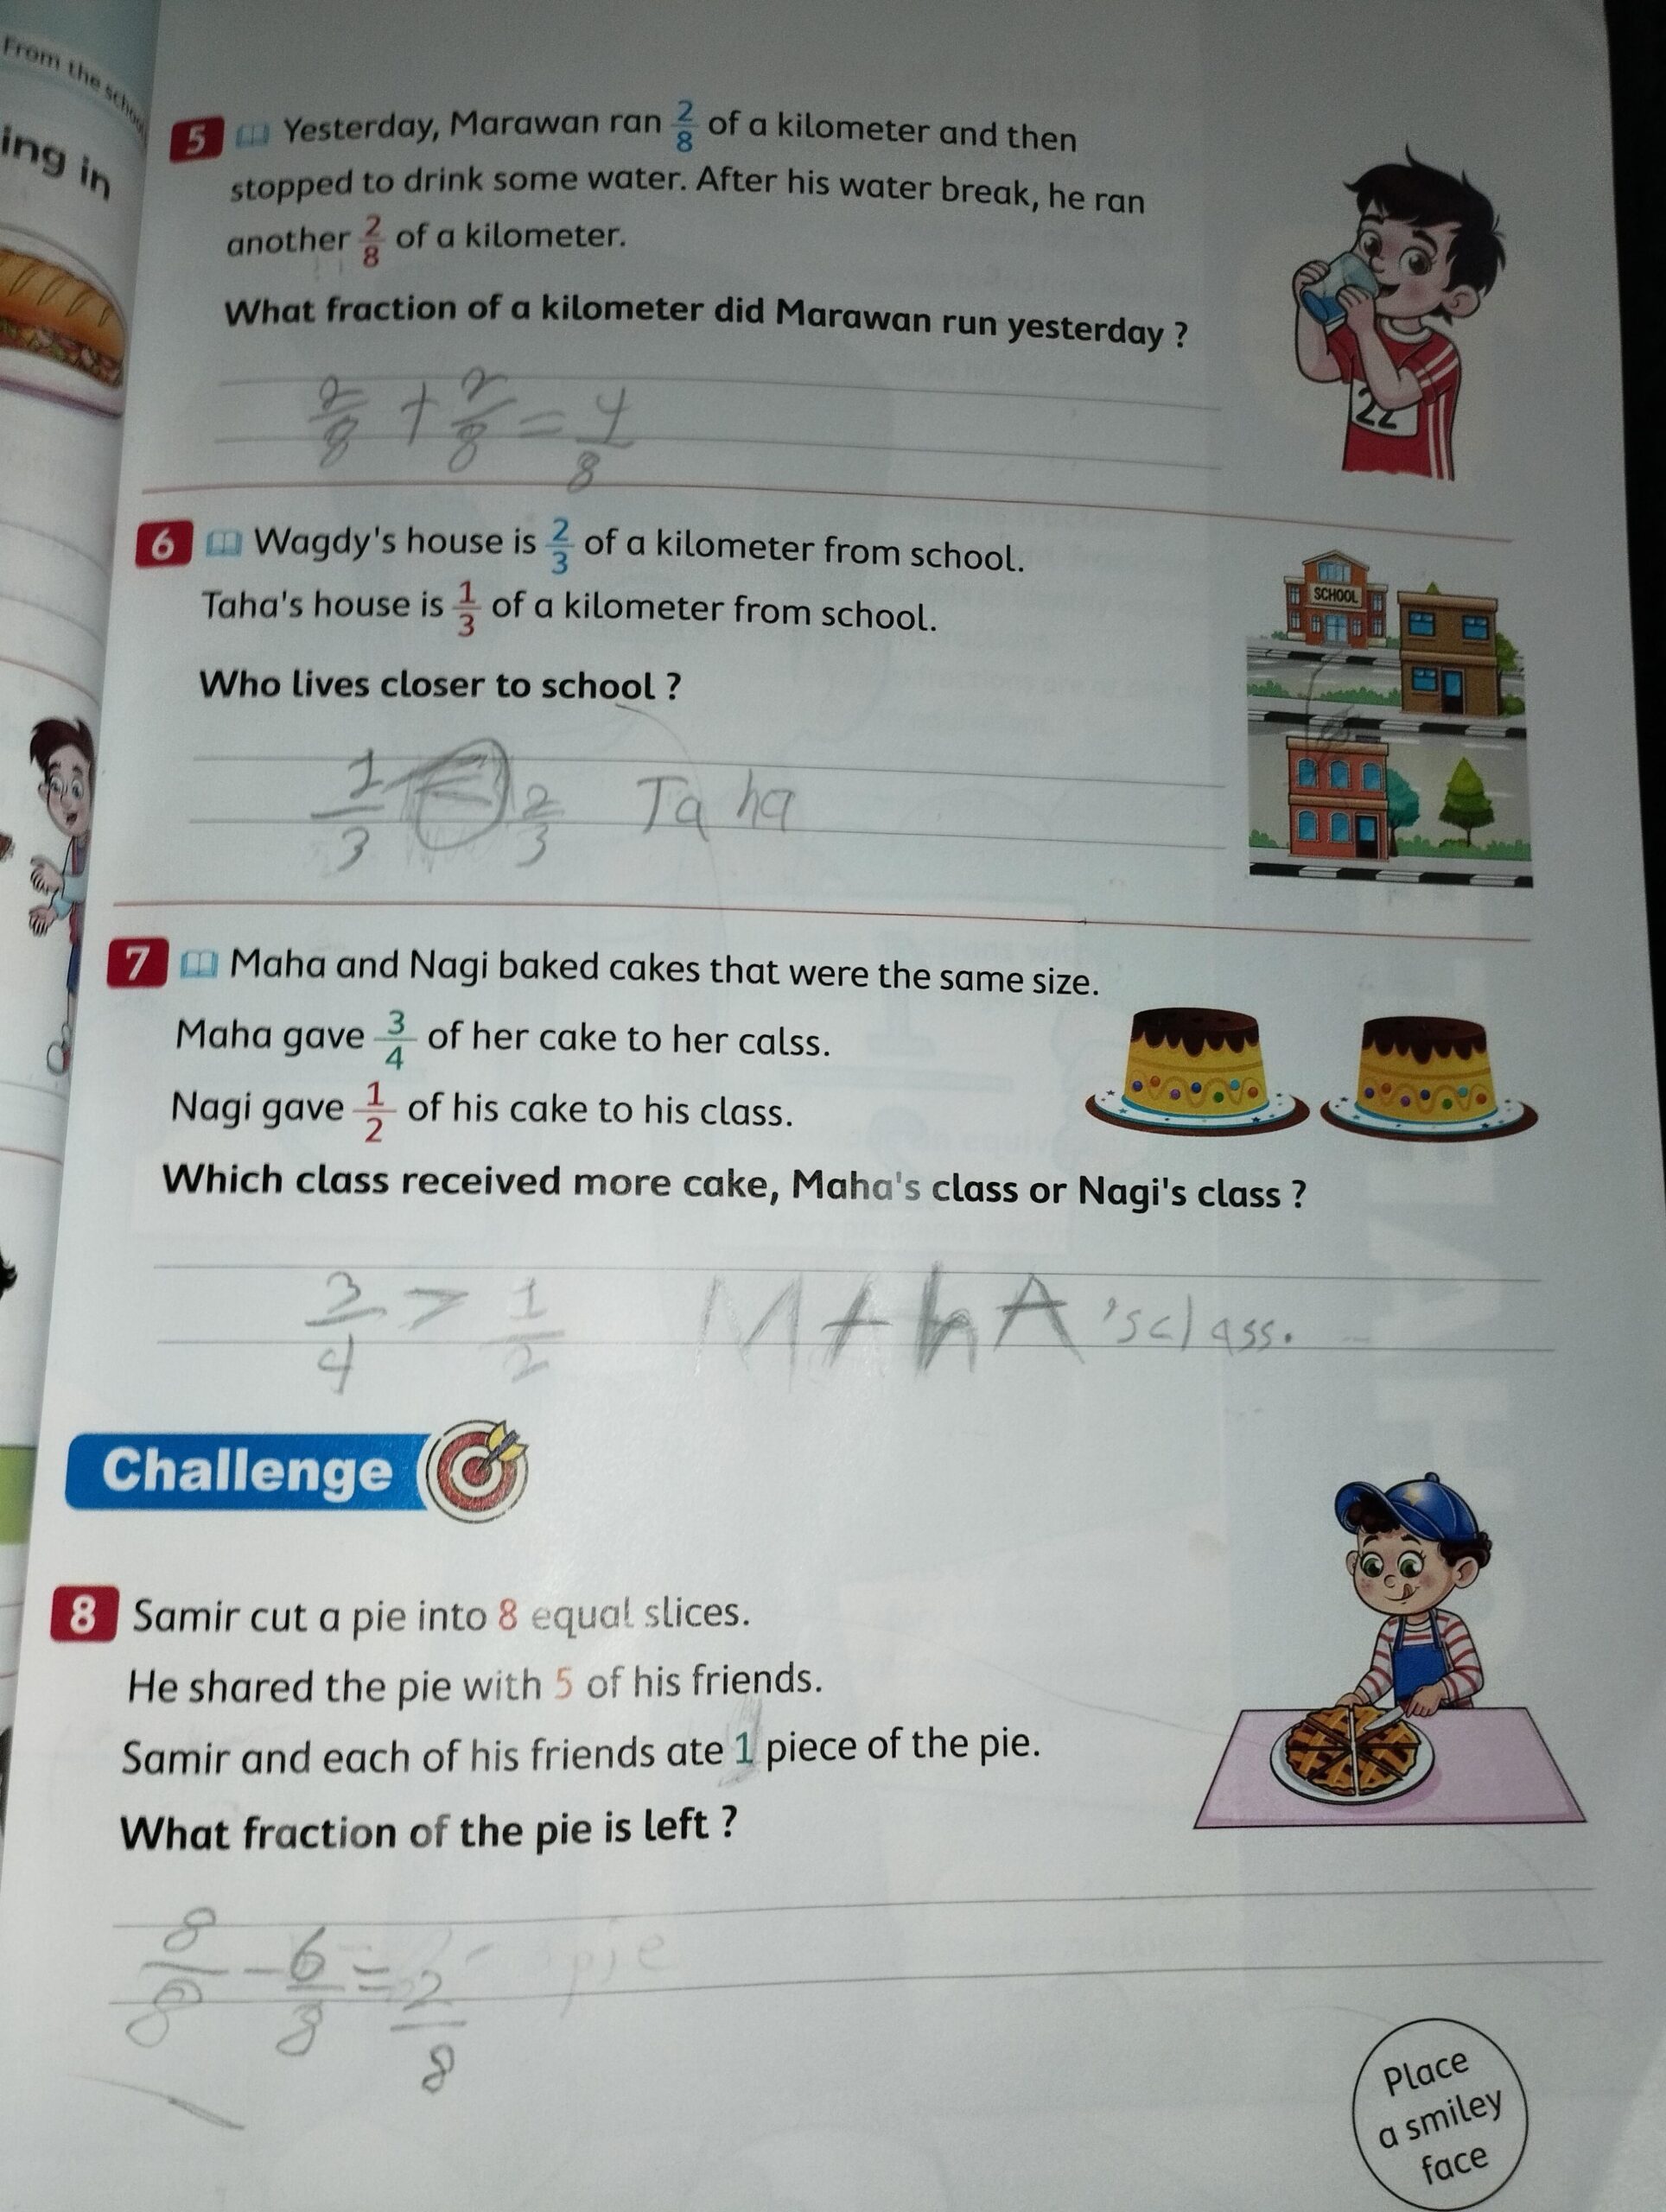 From the school
ing in
5 Yesterday, Marawan ran 2/8 of a kilometer and then
stopped to drink some water. After his water break, he ran
another 2/8 of a kilometer.
What fraction of a kilometer did Marawan run yesterday ?
2/8 + 2/8 = 4/8
22
6 Wagdy's house is 2/3 of a kilometer from school.
Taha's house is 1/3 of a kilometer from school.
SCHOOL
Who lives closer to school ?
1/3 < 2/3 Taha
7 Maha and Nagi baked cakes that were the same size.
Maha gave 3/4 of her cake to her calss.
Nagi gave 1/2 of his cake to his class.
Which class received more cake, Maha's class or Nagi's class ?
3/4 > 1/2 MAhA's class.
Challenge
8 Samir cut a pie into 8 equal slices.
He shared the pie with 5 of his friends.
Samir and each of his friends ate 1 piece of the pie.
What fraction of the pie is left ?
8/8 - 6/8 = 2/8 pie
Place
a smiley
face